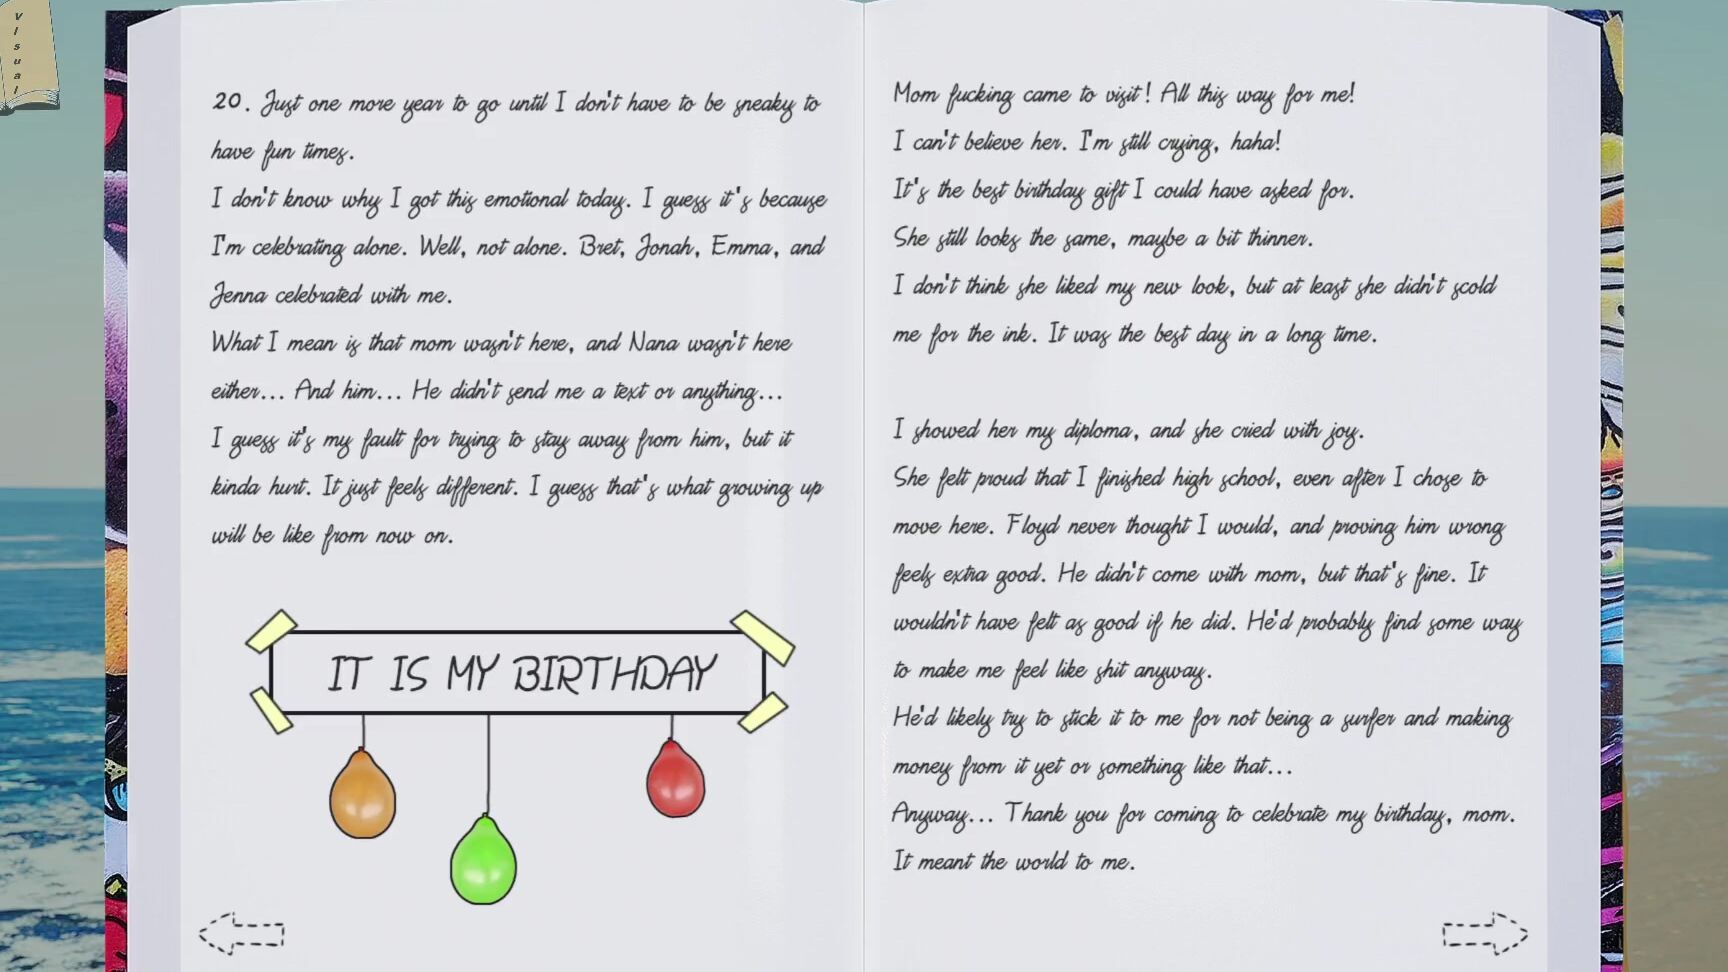 Visual
20. Just one more year to go until I don't have to be sneaky to
have fun times.
I don't know why I got this emotional today. I guess it's because
I'm celebrating alone. Well, not alone. Bret, Jonah, Emma, and
Jenna celebrated with me.
What I mean is that mom wasn't here, and Nana wasn't here
either... And him... He didn't send me a text or anything...
I guess it's my fault for trying to stay away from him, but it
kinda hurt. It just feels different. I guess that's what growing up
will be like from now on.
IT IS MY BIRTHDAY
Mom fucking came to visit! All this way for me!
I can't believe her. I'm still crying, haha!
It's the best birthday gift I could have asked for.
She still looks the same, maybe a bit thinner.
I don't think she liked my new look, but at least she didn't scold
me for the ink. It was the best day in a long time.
I showed her my diploma, and she cried with joy.
She felt proud that I finished high school, even after I chose to
move here. Floyd never thought I would, and proving him wrong
feels extra good. He didn't come with mom, but that's fine. It
wouldn't have felt as good if he did. He'd probably find some way
to make me feel like shit anyway.
He'd likely try to stick it to me for not being a surfer and making
money from it yet or something like that...
Anyway... Thank you for coming to celebrate my birthday, mom.
It meant the world to me.